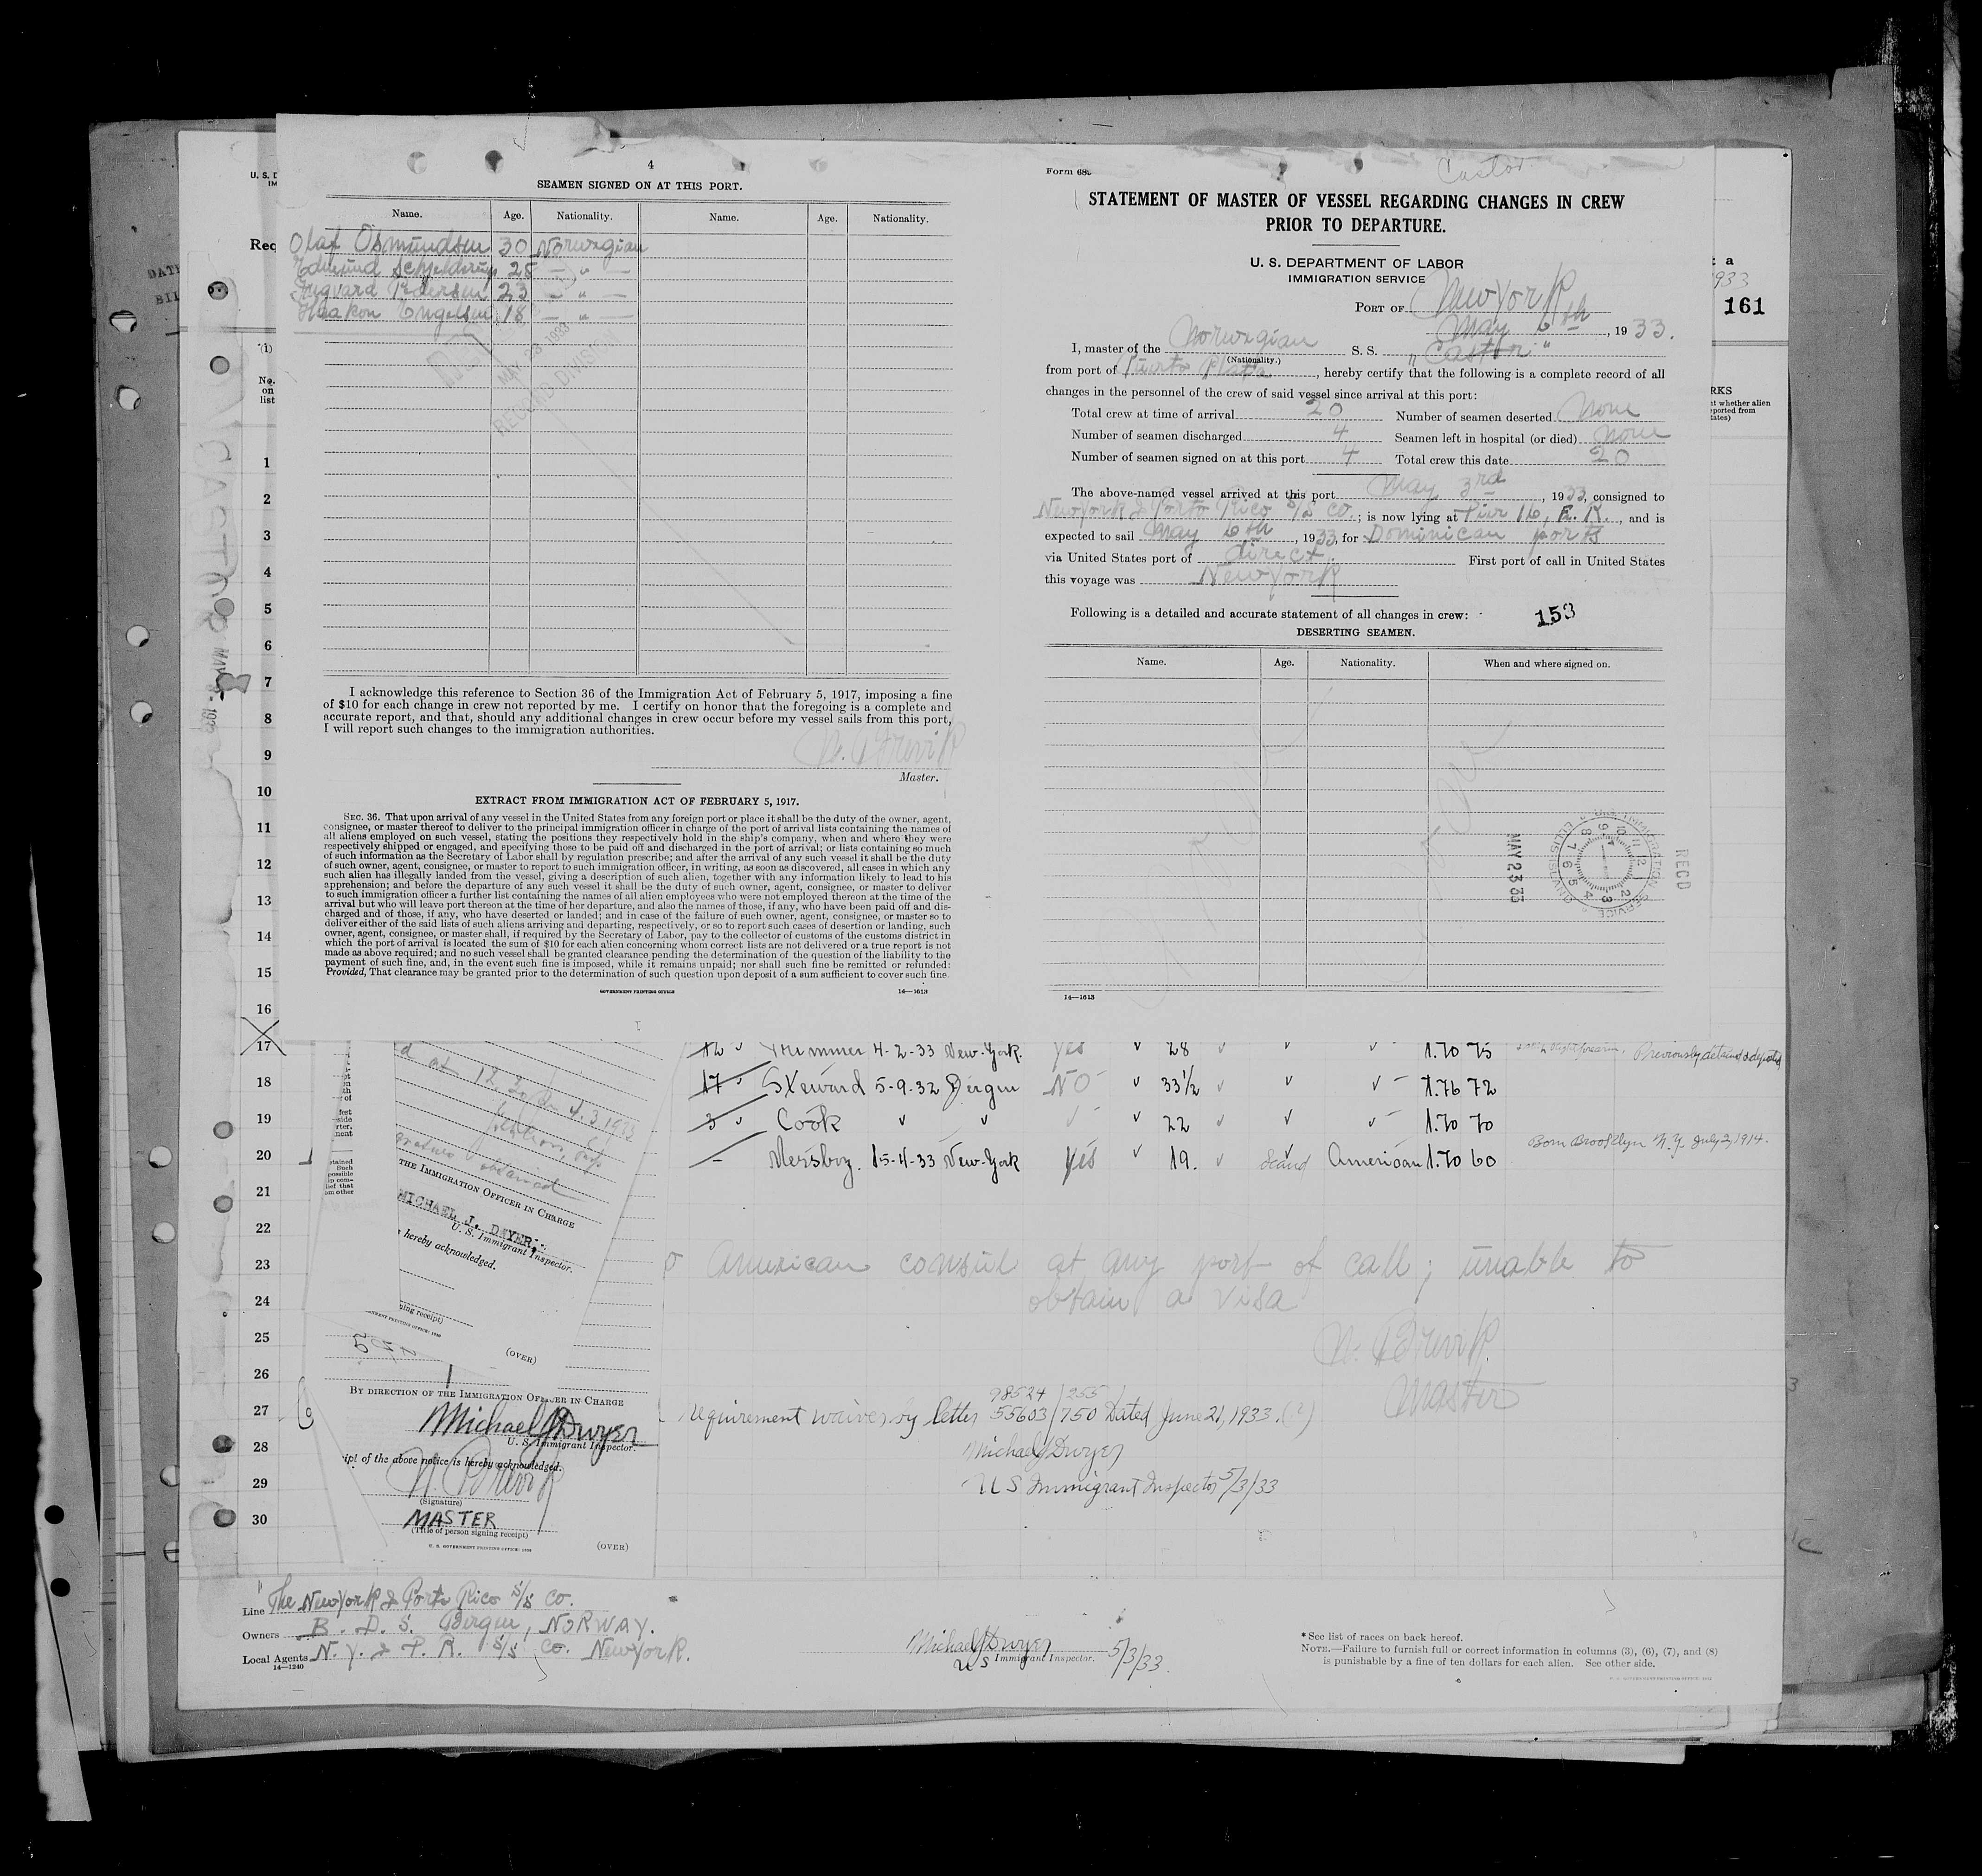 4
SEAMEN SIGNED ON AT THIS PORT.
Name. Age. Nationality. Name. Age. Nationality.
Olaf Osmundsen 30 Norwegian
Edmund Schjelderup 28 — " —
Ingvard Pedersen 23 — " —
Haakon Engelsen 18 — " —
MAY 23 1933
RECORDS DIVISION
I acknowledge this reference to Section 36 of the Immigration Act of February 5, 1917, imposing a fine
of $10 for each change in crew not reported by me. I certify on honor that the foregoing is a complete and
accurate report, and that, should any additional changes in crew occur before my vessel sails from this port,
I will report such changes to the immigration authorities.
N. Brevik
Master.
EXTRACT FROM IMMIGRATION ACT OF FEBRUARY 5, 1917.
SEC. 36. That upon arrival of any vessel in the United States from any foreign port or place it shall be the duty of the owner, agent,
consignee, or master thereof to deliver to the principal immigration officer in charge of the port of arrival lists containing the names of
all aliens employed on such vessel, stating the positions they respectively hold in the ship's company, when and where they were
respectively shipped or engaged, and specifying those to be paid off and discharged in the port of arrival; or lists containing so much
of such information as the Secretary of Labor shall by regulation prescribe; and after the arrival of any such vessel it shall be the duty
of such owner, agent, consignee, or master to report to such immigration officer, in writing, as soon as discovered, all cases in which any
such alien has illegally landed from the vessel, giving a description of such alien, together with any information likely to lead to his
apprehension; and before the departure of any such vessel it shall be the duty of such owner, agent, consignee, or master to deliver
to such immigration officer a further list containing the names of all alien employees who were not employed thereon at the time of the
arrival but who will leave port thereon at the time of her departure, and also the names of those, if any, who have been paid off and dis-
charged and of those, if any, who have deserted or landed; and in case of the failure of such owner, agent, consignee, or master so to
deliver either of the said lists of such aliens arriving and departing, respectively, or so to report such cases of desertion or landing, such
owner, agent, consignee, or master shall, if required by the Secretary of Labor, pay to the collector of customs of the customs district in
which the port of arrival is located the sum of $10 for each alien concerning whom correct lists are not delivered or a true report is not
made as above required; and no such vessel shall be granted clearance pending the determination of the question of the liability to the
payment of such fine, and, in the event such fine is imposed, while it remains unpaid; nor shall such fine be remitted or refunded:
Provided, That clearance may be granted prior to the determination of such question upon deposit of a sum sufficient to cover such fine.
GOVERNMENT PRINTING OFFICE 14—1613
Form 68
Castor
STATEMENT OF MASTER OF VESSEL REGARDING CHANGES IN CREW
PRIOR TO DEPARTURE.
U. S. DEPARTMENT OF LABOR
IMMIGRATION SERVICE
PORT OF New York
May 6th, 1933.
I, master of the Norwegian S. S. "Castor"
(Nationality.)
from port of Puerto Plata, hereby certify that the following is a complete record of all
changes in the personnel of the crew of said vessel since arrival at this port:
Total crew at time of arrival 20 Number of seamen deserted None
Number of seamen discharged 4 Seamen left in hospital (or died) None
Number of seamen signed on at this port 4 Total crew this date 20
The above-named vessel arrived at this port May 3rd, 1933, consigned to
New York & Porto Rico S/S Co.; is now lying at Pier 16, E. R., and is
expected to sail May 6th, 1933, for Dominican ports
via United States port of direct. First port of call in United States
this voyage was New York
Following is a detailed and accurate statement of all changes in crew: 153
DESERTING SEAMEN.
Name. Age. Nationality. When and where signed on.
None None
MAY 23 33
REC'D
14—1613
U. S. D
IM
Req
DAT
BIL
(1)
No.
on
list
a
1933
161
RKS
1
2
3
4
5
6
7
8
9
10
11
12
13
14
15
16
17 Trimmer 4-2-33 New-York. Yes ✓ 28 ✓ ✓ ✓ 1.70 75 Previously detained & deported
18 17 Steward 5-9-32 Bergen NO ✓ 33½ ✓ ✓ ✓ 1.76 72
19 3 Cook ✓ ✓ ✓ ✓ 22 ✓ ✓ ✓ 1.70 70
20 — Messboy. 15-4-33 New-York Yes ✓ 19. ✓ Scand American 1.70 60 Born Brooklyn N.Y. July 2, 1914.
21
22
23 American consul at any port of call; unable to
24 obtain a visa
25 N. Brevik.
26 Master
98524/255
27 requirement waived by letter 55603/750 Dated June 21, 1933. (?)
28 Michael J Dwyer
29 U S Immigrant Inspector 5/3/33
30
THE IMMIGRATION OFFICER IN CHARGE
MICHAEL J. DWYER,
U. S. Immigrant Inspector.
hereby acknowledged.
ping receipt)
(OVER)
BY DIRECTION OF THE IMMIGRATION OFFICER IN CHARGE
Michael J Dwyer
U. S. Immigrant Inspector.
ipt of the above notice is hereby acknowledged.
N. Brevik
(Signature)
MASTER
(Title of person signing receipt)
U. S. GOVERNMENT PRINTING OFFICE (OVER)
Line The New York & Porto Rico S/S Co.
Owners B. D. S. Bergen, NORWAY.
Local Agents N. Y. & P. R. S/S Co. New York.
14—1240
Michael J Dwyer 5/3/33.
U S Immigrant Inspector.
*See list of races on back hereof.
NOTE.—Failure to furnish full or correct information in columns (3), (6), (7), and (8)
is punishable by a fine of ten dollars for each alien. See other side.